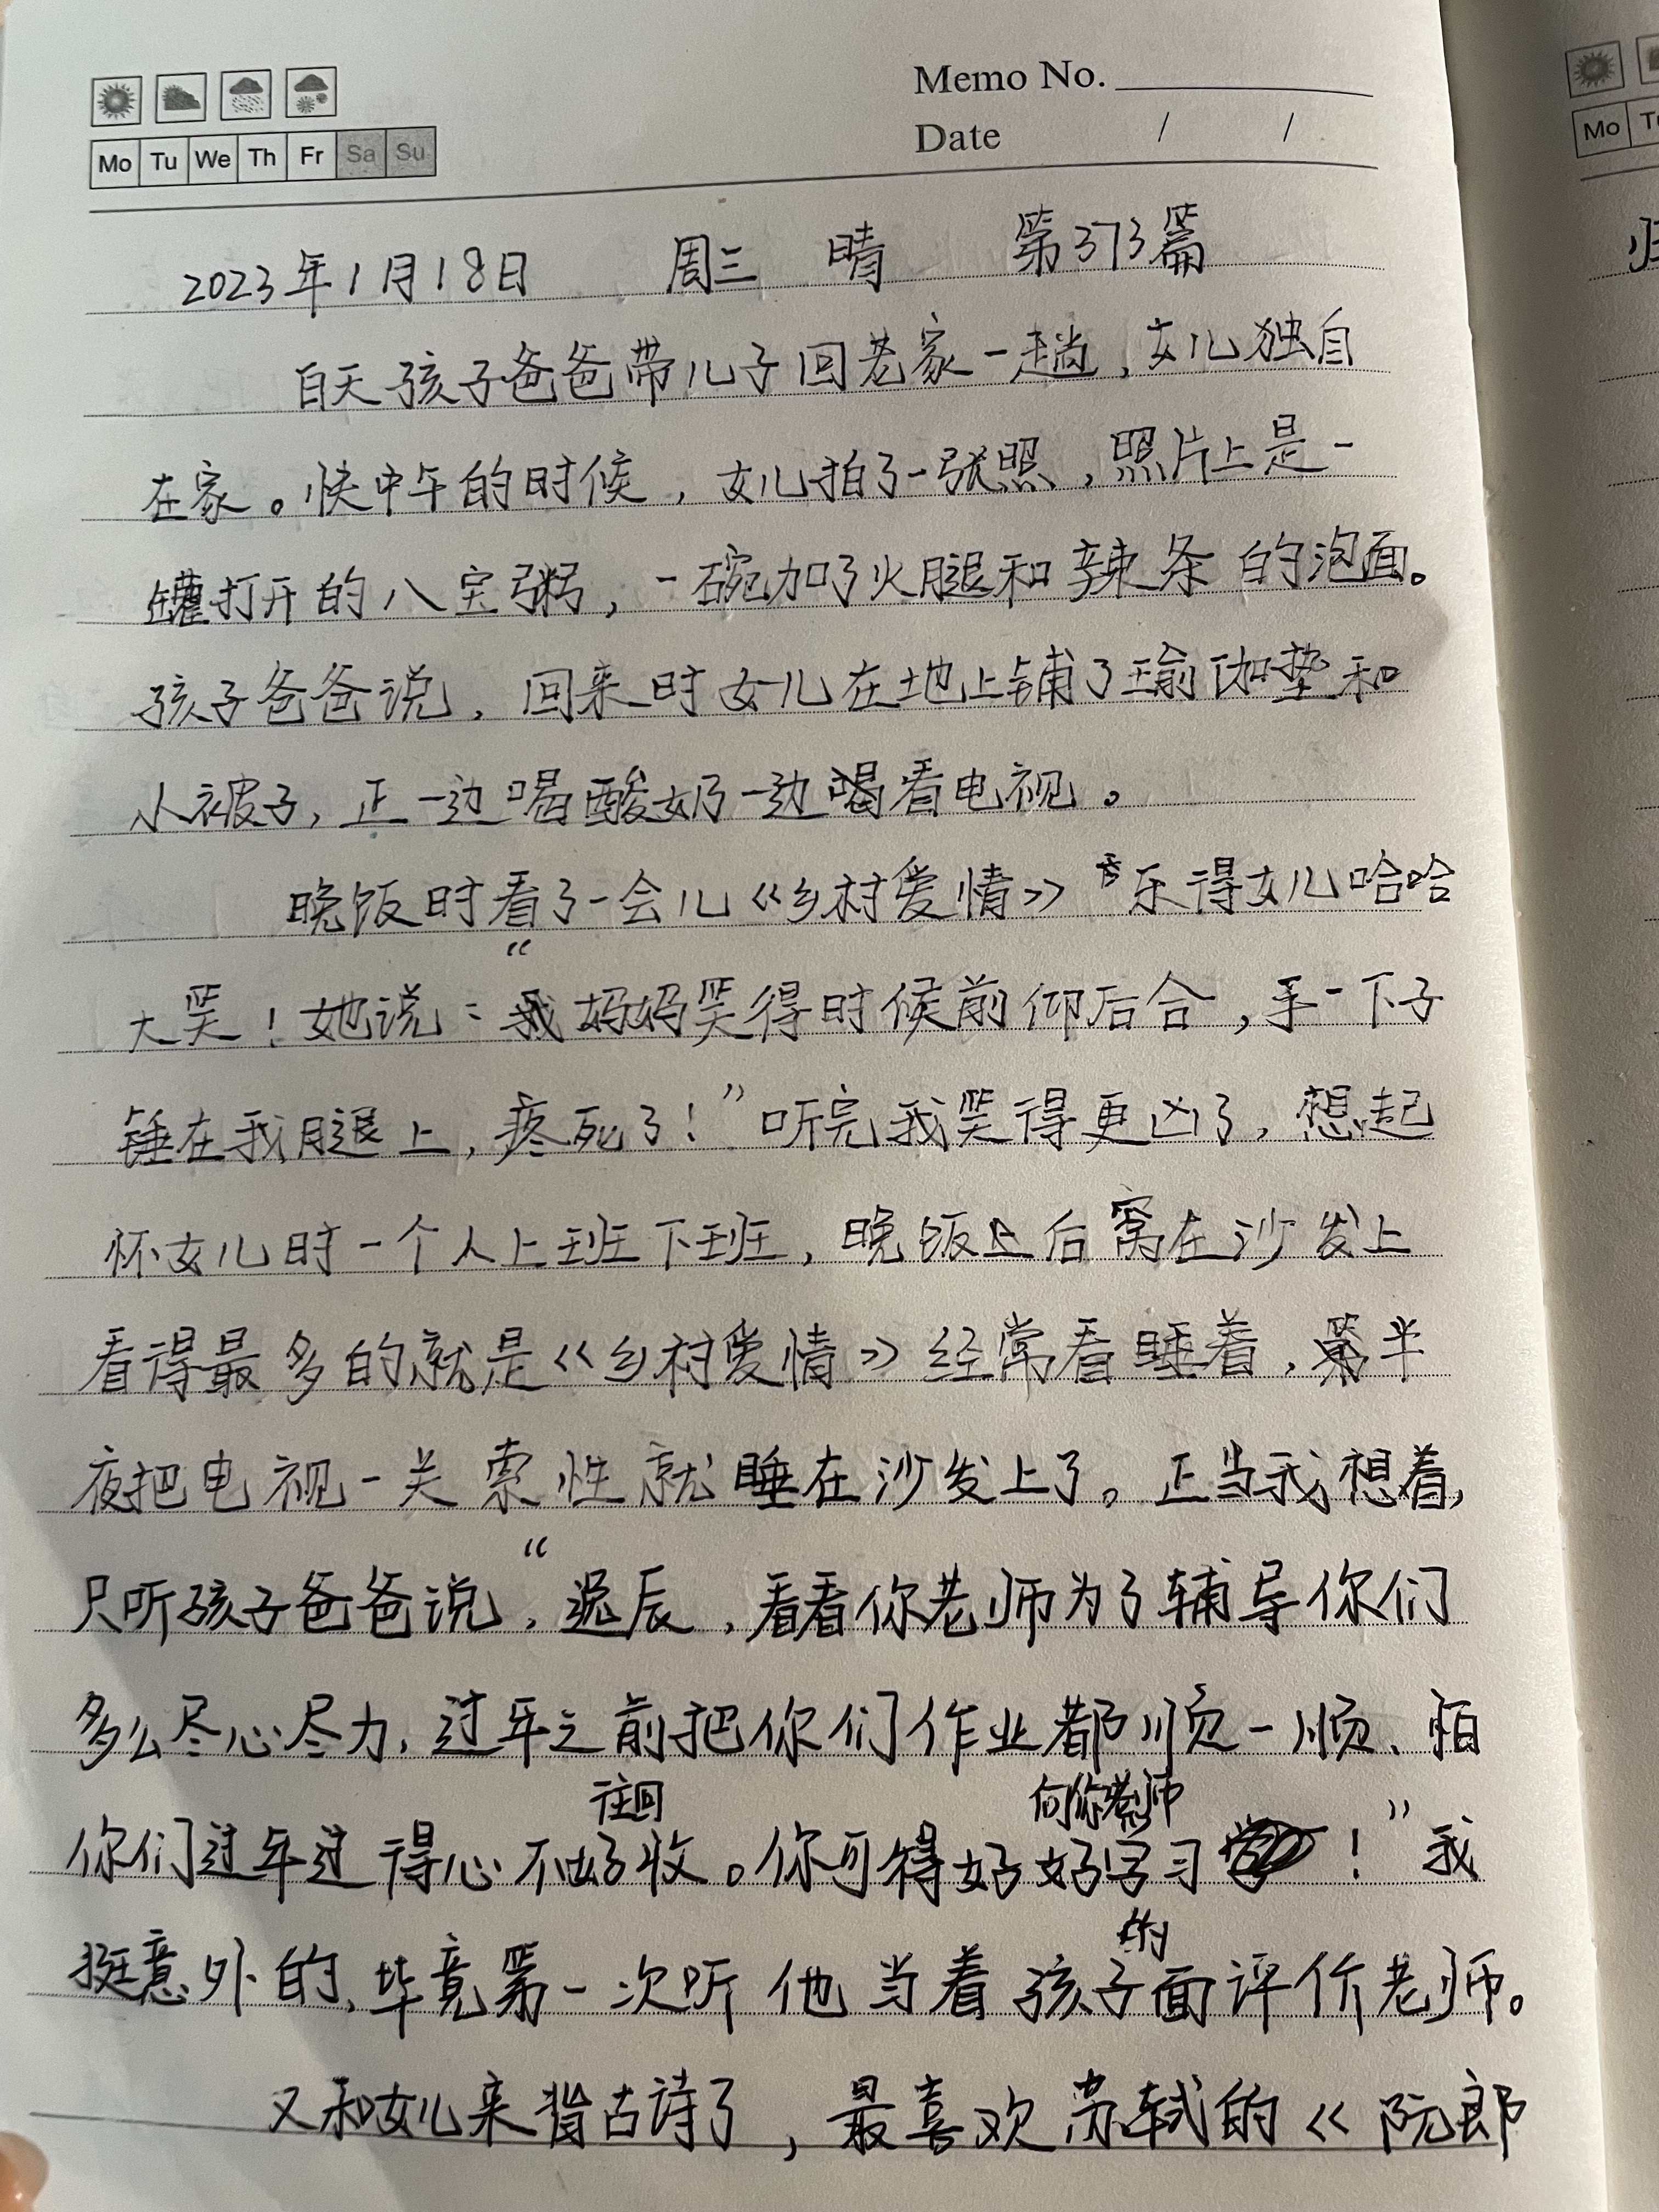 Memo No.
Date / /
Mo Tu We Th Fr Sa Su
Mo
2023年1月18日 周三 晴 第373篇
白天孩子爸爸带儿子回老家一趟,女儿独自
在家。快中午的时候,女儿拍了一张照,照片上是一
罐打开的八宝粥,一碗加了火腿和辣条的泡面。
孩子爸爸说,回来时女儿在地上铺了瑜伽垫和
小被子,正一边喝酸奶一边喝看电视。
晚饭时看了一会儿《乡村爱情》乐得女儿哈哈
大笑!她说:“我妈妈笑得时候前仰后合,手一下子
锤在我腿上,疼死了!”听完我笑得更凶了,想起
怀女儿时一个人上班下班,晚饭后窝在沙发上
看得最多的就是《乡村爱情》经常看睡着,第半
夜把电视一关索性就睡在沙发上了。正当我想着,
只听孩子爸爸说,“辰,看看你老师为了辅导你们
多么尽心尽力,过年之前把你们作业都顺一顺、怕
你们过年过得心不好往回收。你可得好好向你老师学习!”我
挺意外的、毕竟第一次听他当着孩子的面评价老师。
又和女儿来背古诗了,最喜欢苏轼的《阮郎
归